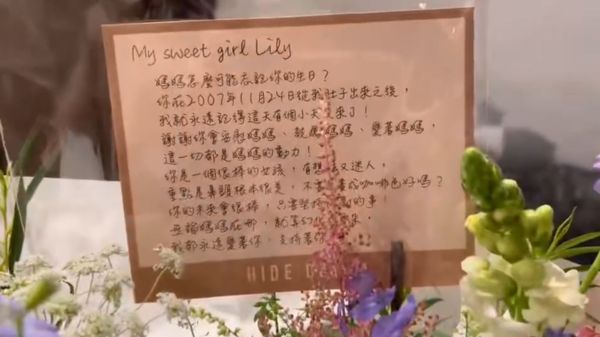 My sweet girl Lily
媽媽怎麼可能忘記你的生日？
你在2007年11月24日從我肚子出來之後，
我就永遠記得這天有個小天 來了！
謝謝你會安慰媽媽、 媽媽、愛著媽媽，
這一切都是媽媽的動力！
你是一個很棒的女孩，有 又迷人，
重點是鼻頭根本很是，不 成咖啡色好嗎？
你的未來會很棒，只 的事！
無論媽媽在哪，就 來，
我都永遠愛著你、支持著你
HIDE